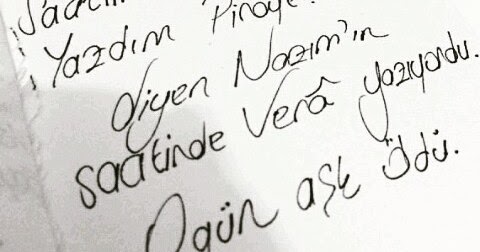 Yazdım Piraye
diyen Nazım'ın
saatinde Verâ yazıyordu.
O gün aşk öldü.